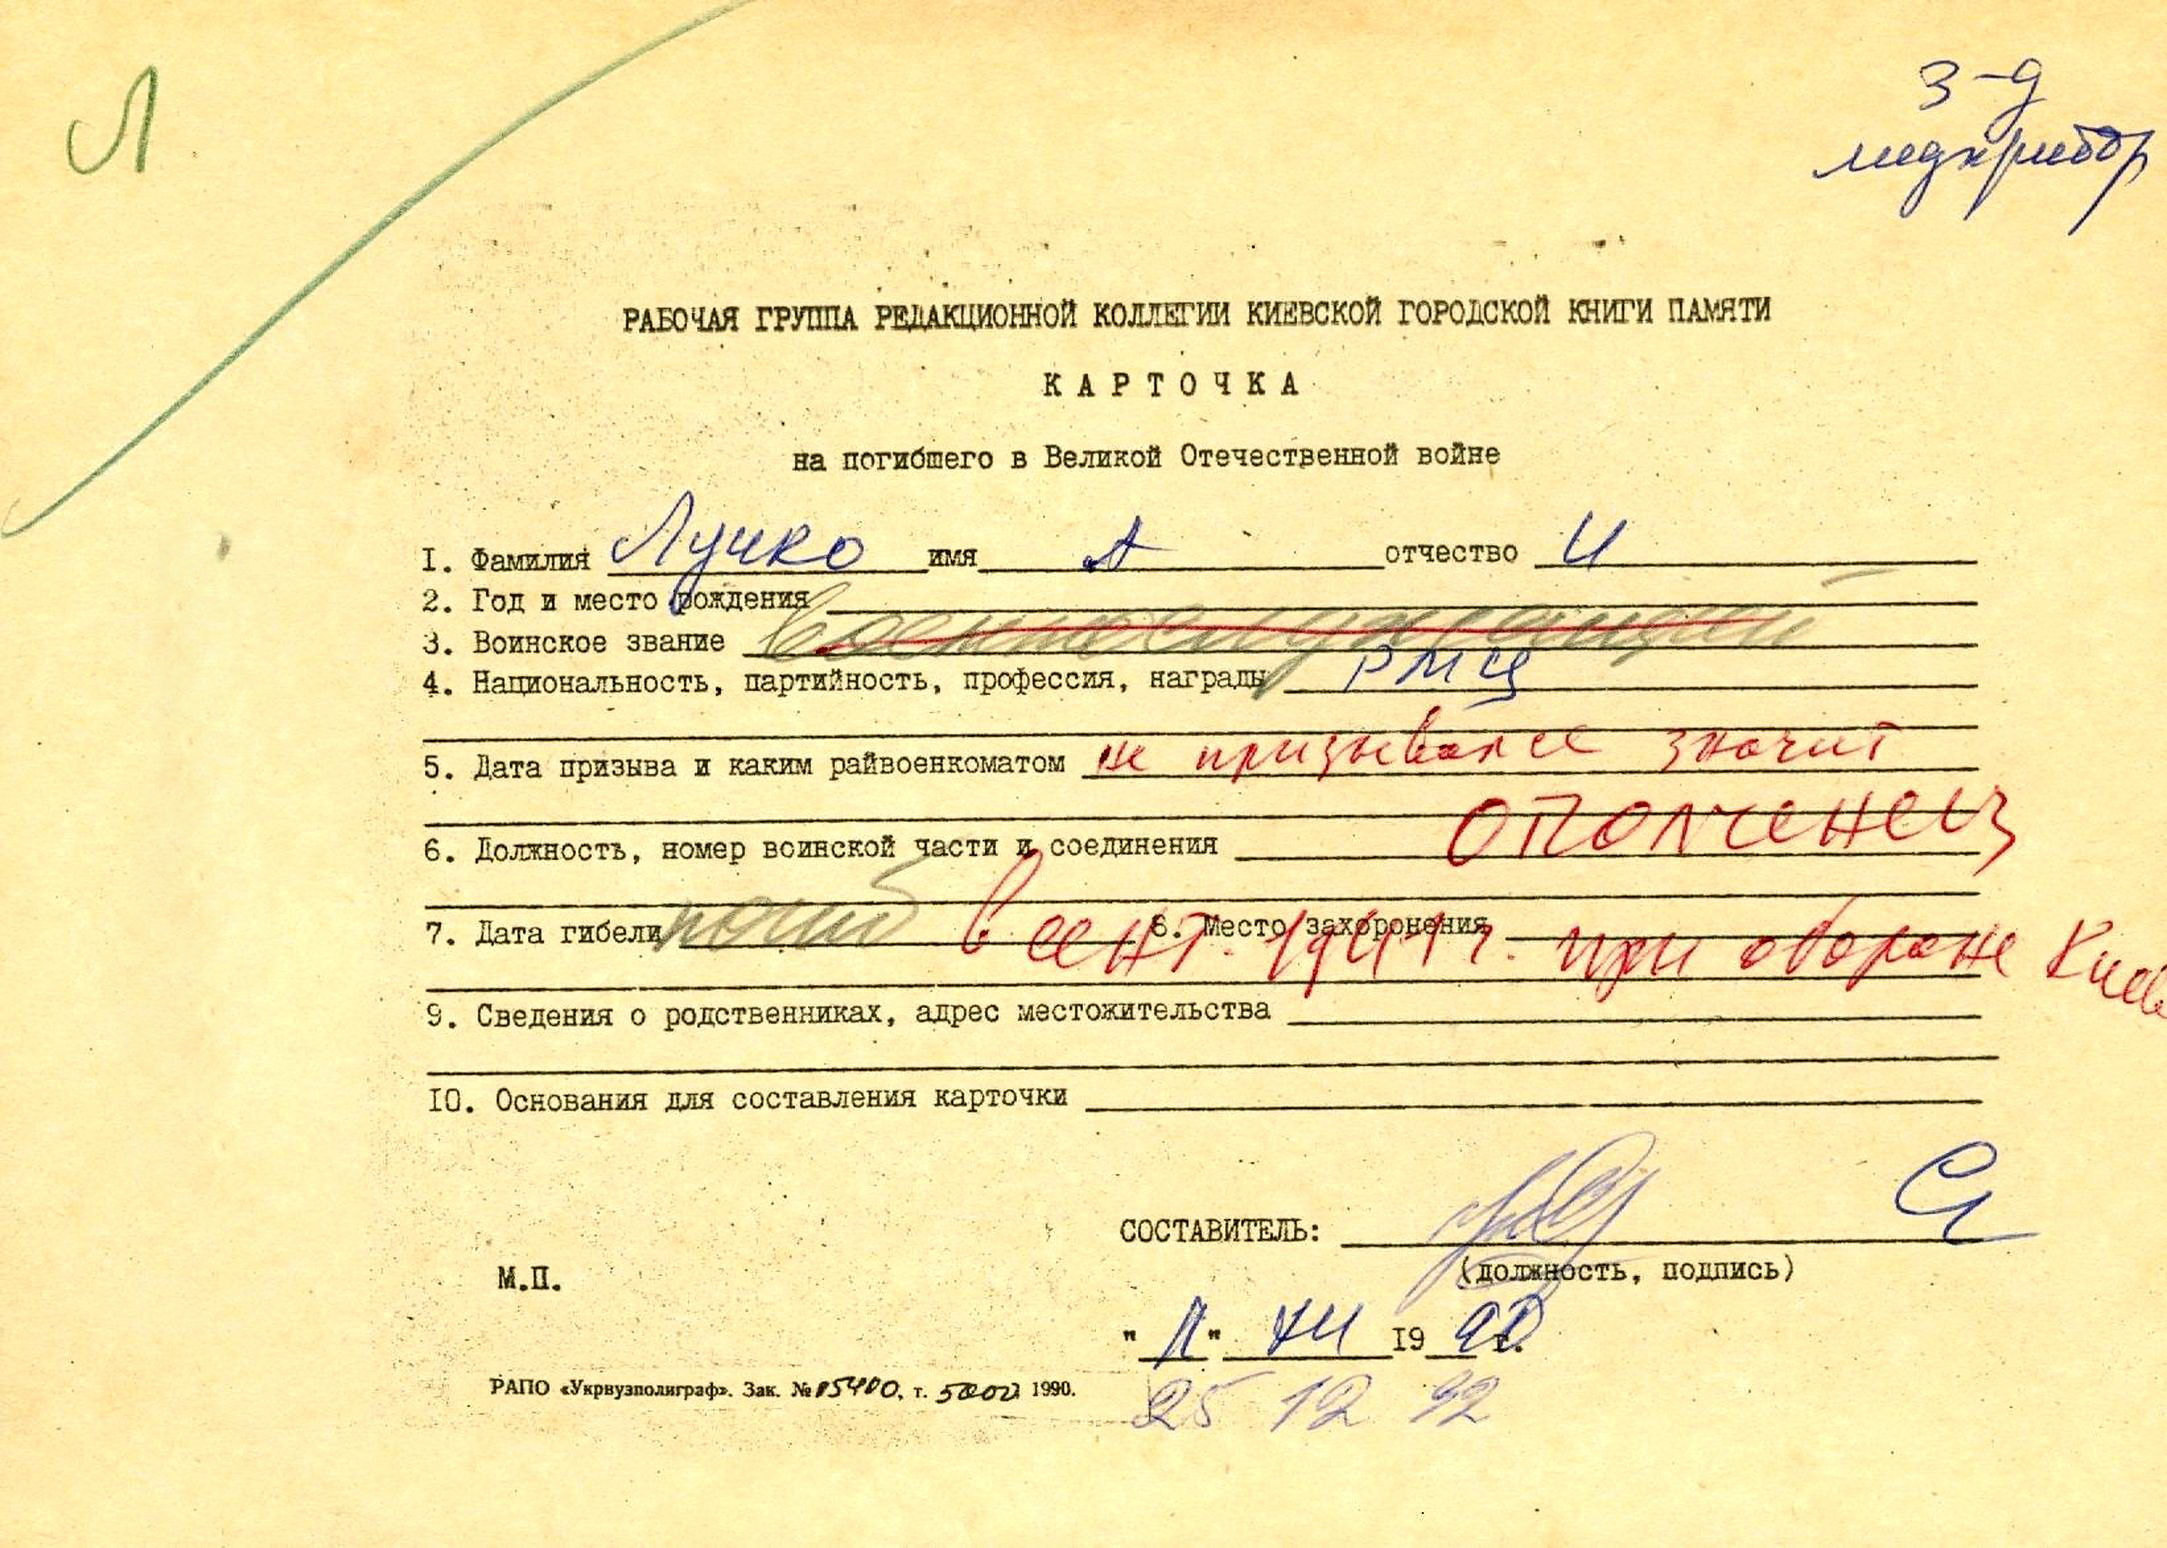 Л
з-д
медприбор
РАБОЧАЯ ГРУППА РЕДАКЦИОННОЙ КОЛЛЕГИИ КИЕВСКОЙ ГОРОДСКОЙ КНИГИ ПАМЯТИ
КАРТОЧКА
на погибшего в Великой Отечественной войне
1. Фамилия Лучко имя А отчество И
2. Год и место рождения
3. Воинское звание военнослужащий
4. Национальность, партийность, профессия, награды РМЦ
5. Дата призыва и каким райвоенкоматом не призывался значит
ополченец
6. Должность, номер воинской части и соединения
7. Дата гибели погиб в сент. 1941 г. 8. Место захоронения при обороне Киева
9. Сведения о родственниках, адрес местожительства
10. Основания для составления карточки
СОСТАВИТЕЛЬ:
(должность, подпись)
М.П.
" " XII 1990 г.
РАПО «Укрвузполиграф». Зак. № 05400, т. 5000 1990.
25 12 92